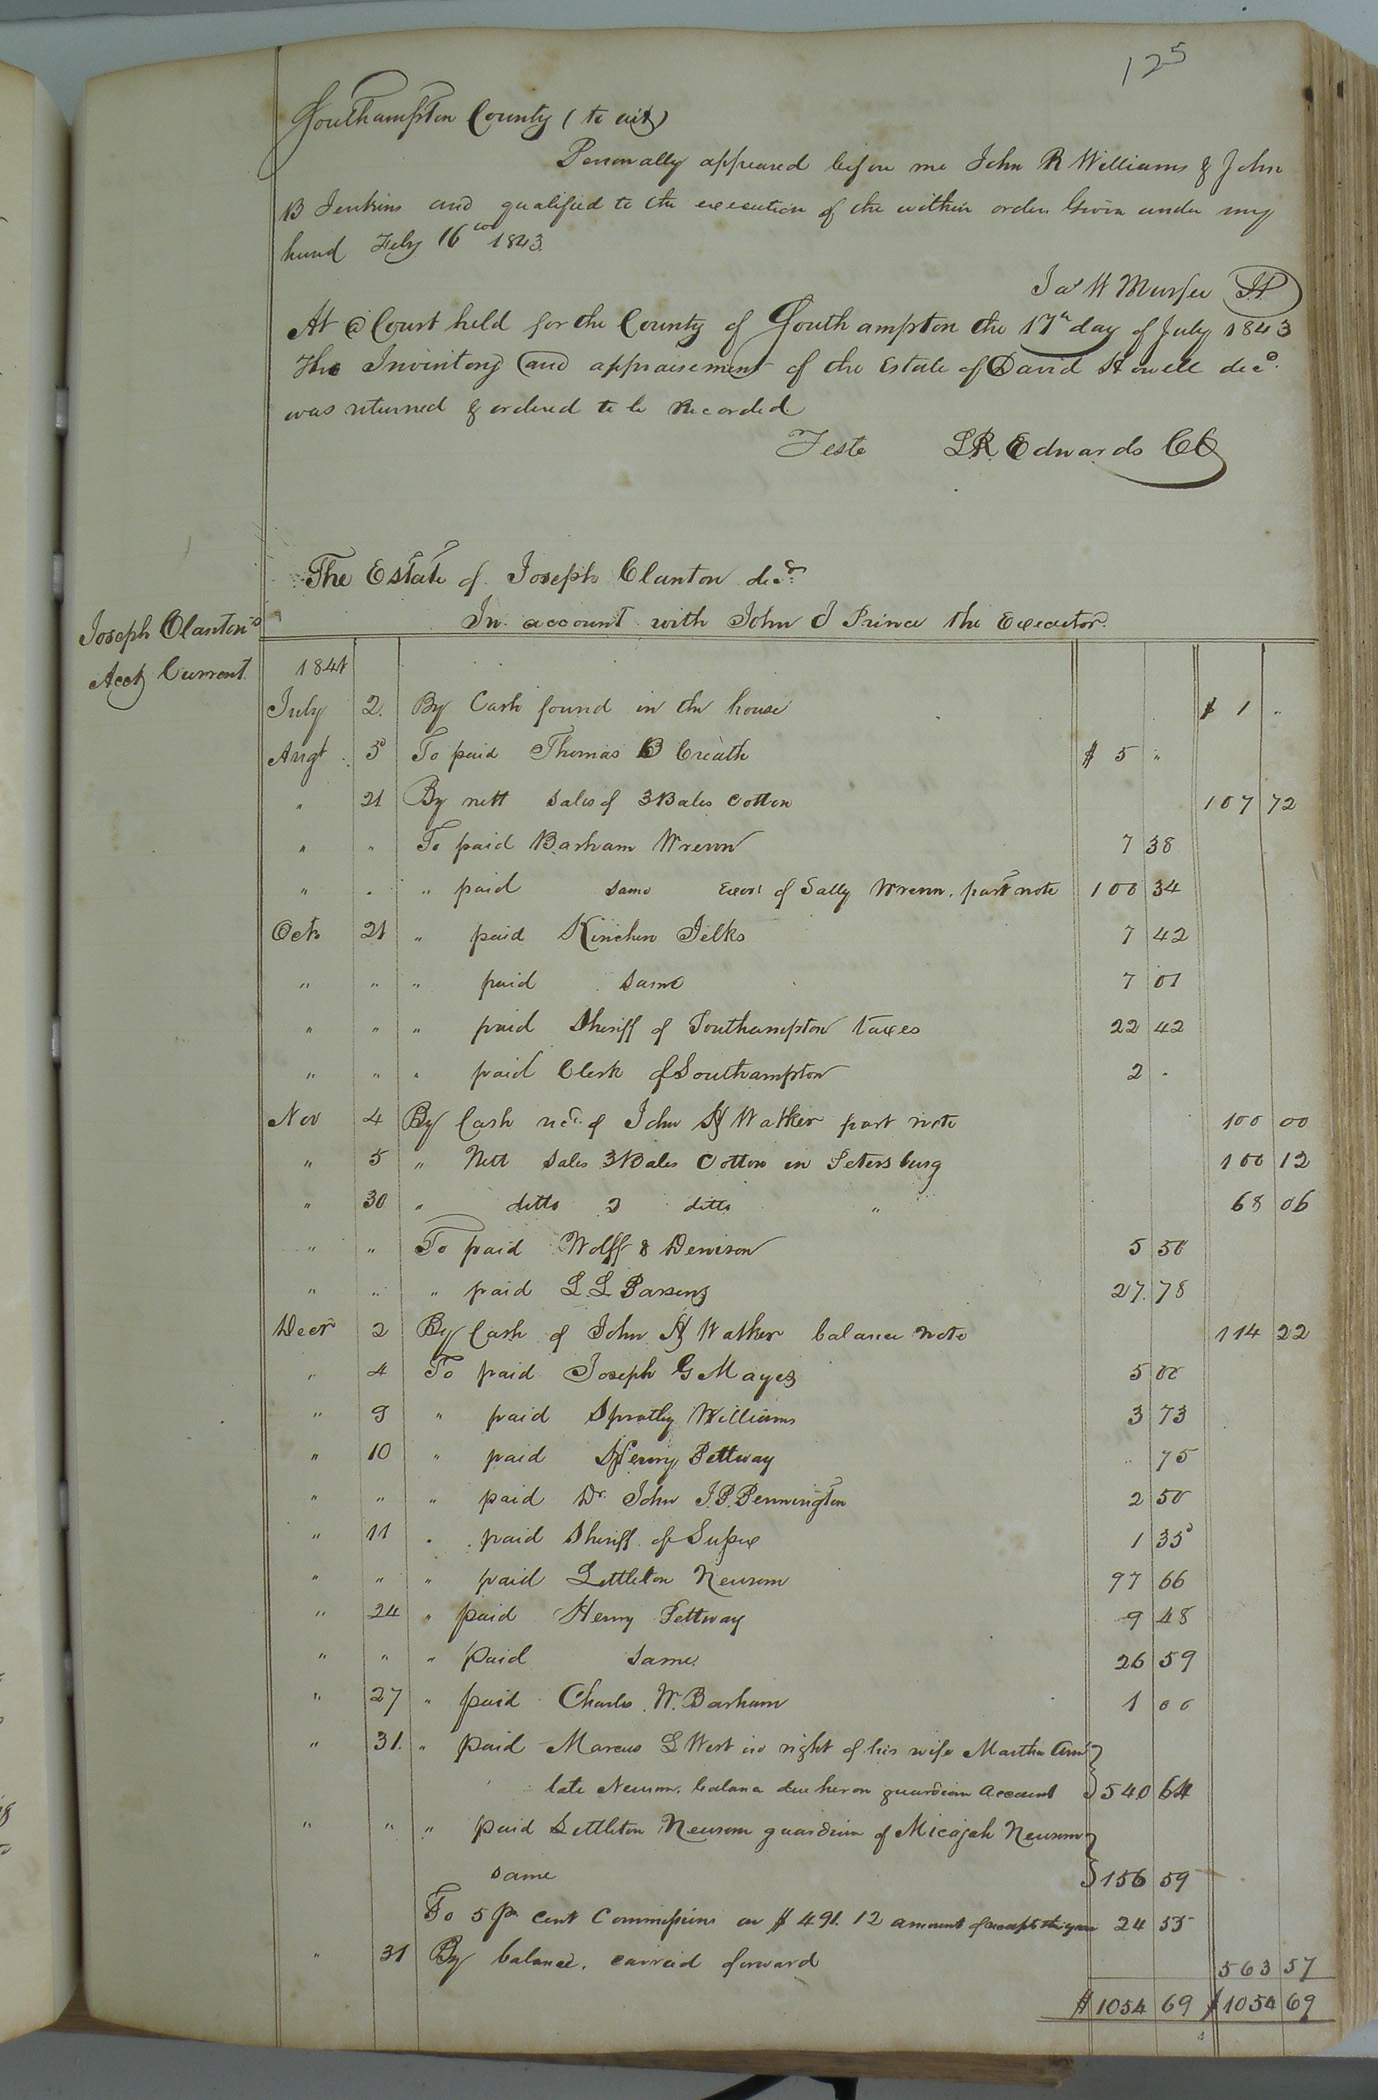 125
Southampton County (to wit)
Personally appeared before me John R Williams & John
B Jenkins and qualified to the execution of the within order Given under my
hand Feby 16th 1843.
Jas W Murfee JP
At a Court held for the County of Southampton the 17th day of July 1843
The Inventory and appraisement of the Estate of David Howell decd.
was returned & ordered to be Recorded
Teste L R Edwards CC
The Estate of Joseph Clanton decd.
In account with John J Prince the Executor.
Joseph Clanton's
Acct Current
1841
July 2. By Cash found in the house $ 1 "
Augt 3 To paid Thomas B Creath $ 5 "
" 21 By nett sales of 3 Bales Cotton 107 72
" " To paid Barham Wrenn 7 38
" " " paid same Exor of Sally Wrenn, part note 100 34
Octo 21 " paid Kinchen Jelks 7 42
" " " paid same 7 01
" " " paid Sheriff of Southampton taxes 22 42
" " " paid Clerk of Southampton 2 "
Nov 4 By Cash recd of John H Walker part note 100 00
" 5 " Nett sales 3 Bales Cotton in Petersburg 100 12
" 30 " ditto 2 ditto " 68 06
" " To paid Wolff & Denison 5 50
" " " paid L L Parsons 27 78
Decr 2 By Cash of John H Walker balance note 114 22
" 4 To paid Joseph G Mayes 5 00
" 9 " paid Spratly Williams 3 73
" 10 " paid Henry Pettway 75
" " " paid Dr. John J. P. Pennington 2 50
" 11 " paid Sheriff of Sussex 1 35
" " " paid Littleton Newsom 97 66
" 24 " paid Henry Pettway 9 48
" " " paid same 26 59
" 27 " paid Charls W. Barham 1 00
" 31. " paid Marcus L West in right of his wife Martha Ann
late Newsom, balance due her on guardian account 540 64
" " " paid Littleton Newsom guardian of Micajah Newsom
same 156 59
To 5 pr cent Commissions on $ 491. 12 amount of receipts this year 24 55
" 31 By balance, carried forward 563 57
$ 1054 69 $ 1054 69